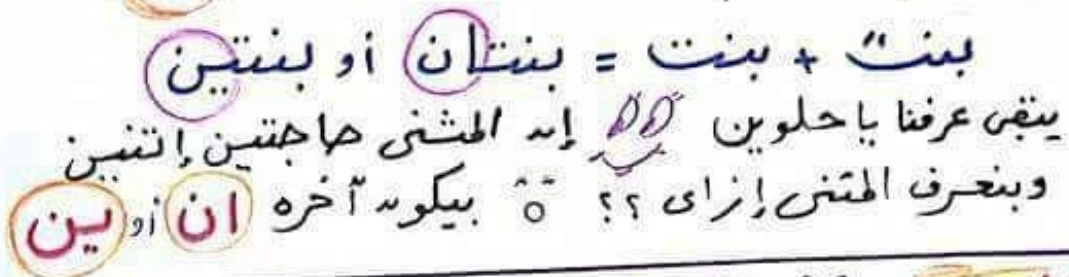 بنت + بنت = بنتان أو بنتين
يبقى عرفنا يا حلوين إن المثنى حاجتين إتنين
وبنعرف المثنى إزاى ؟؟ بيكون آخره ان أو ين